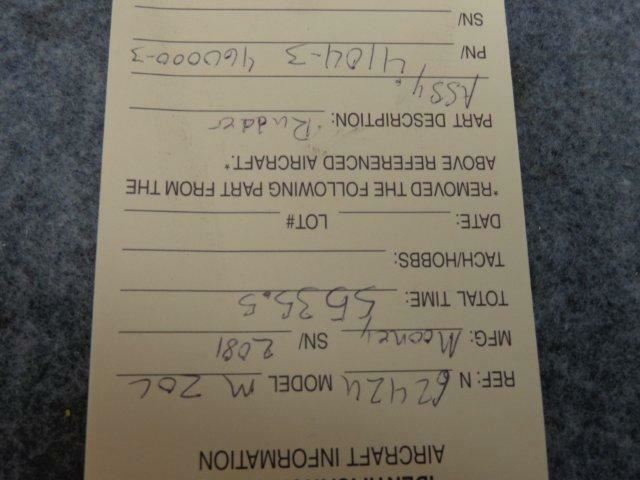 AIRCRAFT INFORMATION
REF: N 6242U MODEL M20C
MFG: Mooney SN/ 2081
TOTAL TIME: 5535.5
TACH/HOBBS:
DATE: LOT#
"REMOVED THE FOLLOWING PART FROM THE
ABOVE REFERENCED AIRCRAFT".
PART DESCRIPTION: Rudder
ASSY.
PN/ 4104-3 460000-3
SN/